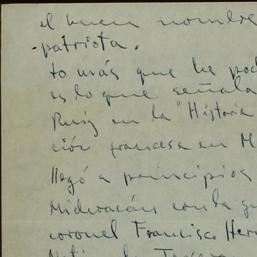 el buen nombre
patriota.
to más que he pod
es lo que señala
Ruiz en la "Historia
ción francesa en M
llegó a principios
Michoacán con la gu
coronel Francisco Her